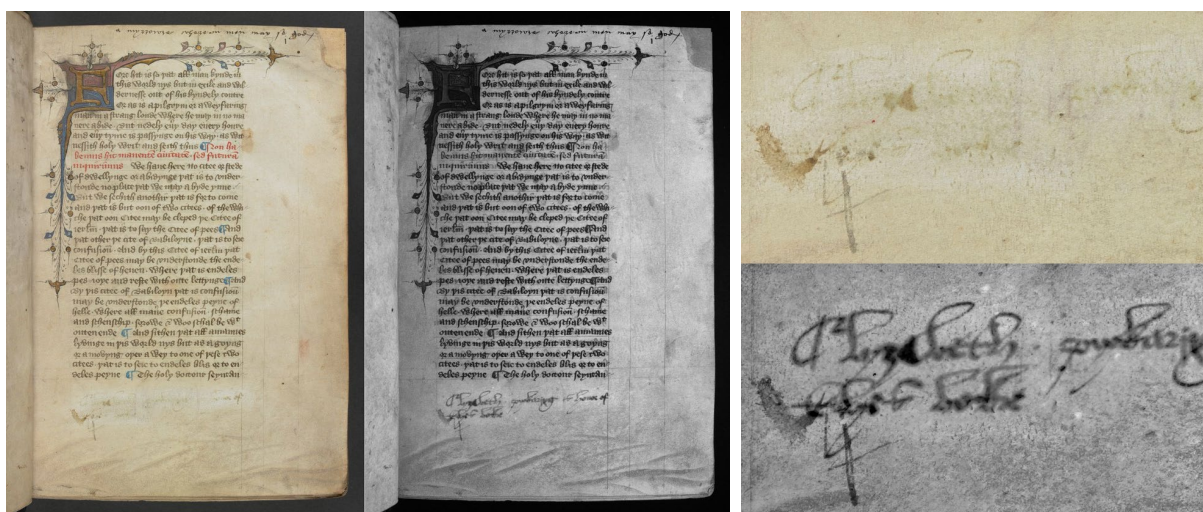 hit is so þat all man kynde in
this world nys but in exile and wil
dernesse out of his kyndely contre
or as is a pilgrym or a weyfaring
man in a strang londe where he may in no ma
nere abide · but nedely euy day euery houre
and euy tyme is passynge on his way · as wit
nessith holy writ and seith thus ¶ Non ha
bemus hic manente ciuitate · sed futurā
inquirimus We haue here no citee ne stede
of dwellynge or abidynge þat is to vnder
stonde no place þat we may abyde ynne
But we sechith another þat is for to come
and þat is but oon of two citees · of the whi
che þat oon Citee may be cleped þe Citee of
ierlm̄ þat is to sey the Citee of pees ¶ And
þat other þe cite of Babiloyne · þat is to seie
confusioū · And by this Citee of ierlm̄ þat
citee of pees may be vnderstonde the ende
les blisse of heuen · Where þat is endeles
pes ioye and reste with oute lettynge ¶ And
by þis citee of Babiloyn þat is confusioū
may be vnderstonde þe endeles peyne of
helle · Where all mane confusion schame
and schenschip sorowe & woo schal be wt
outen ende ¶ And sithen þat all
lyuinge in þis world nys but as a goyng
or a mouyng opon a wey to one of þese two
citees · þat is to seie to endeles blis or to en
deles peyne ¶ The holy doctour seynt
Elyzabeth is honer of
thys boke
Elyzabeth
thys boke